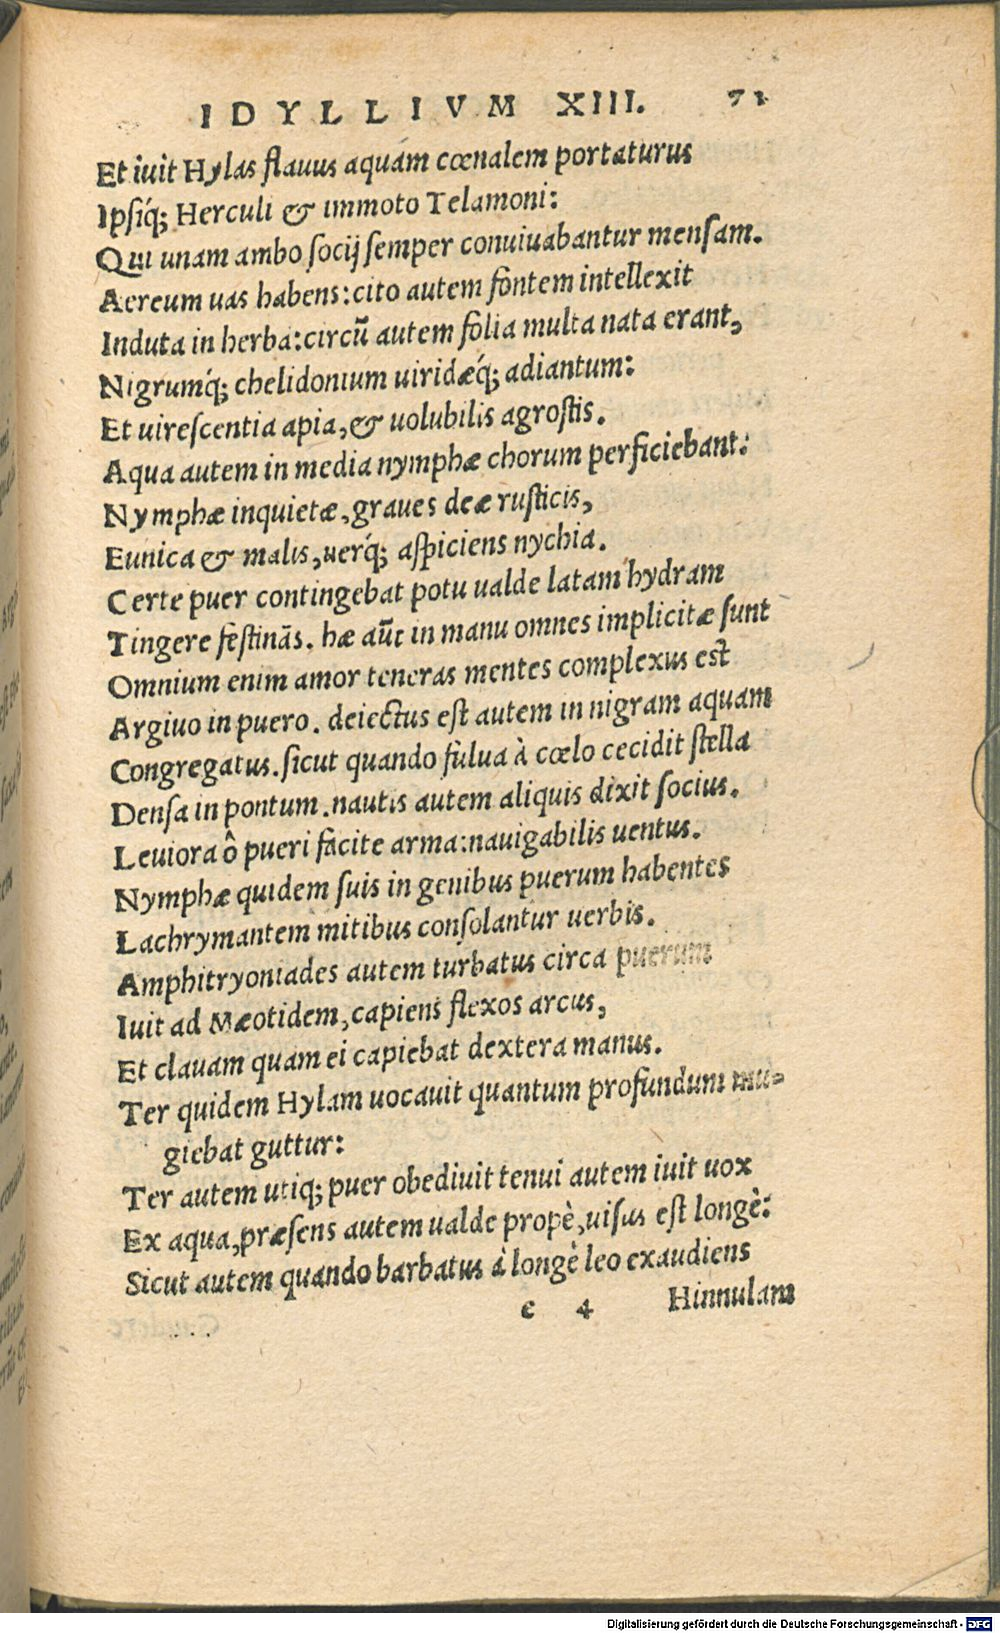 IDYLLIVM XIII. 71
Et iuit Hylas flauus aquam cœnalem portaturus
Ipsíq; Herculi & immoto Telamoni:
Qui unam ambo socij semper conuiuabantur mensam.
Aereum uas habens: cito autem fontem intellexit
Induta in herba: circũ autem folia multa nata erant,
Nigrumq́; chelidonium uiridæq́; adiantum:
Et uirescentia apia, & uolubilis agrostis.
Aqua autem in media nymphæ chorum perficiebant:
Nymphæ inquietæ, graues deæ rusticis,
Eunica & malis, uerq́; aspiciens nychia.
Certe puer contingebat potu ualde latam hydram
Tingere festinãs. hæ aũt in manu omnes implicitæ sunt
Omnium enim amor teneras mentes complexus est
Argiuo in puero. deiectus est autem in nigram aquam
Congregatus. sicut quando fulua à cœlo cecidit stella
Densa in pontum. nautis autem aliquis dixit socius.
Leuiora ô pueri facite arma: nauigabilis uentus.
Nymphæ quidem suis in genibus puerum habentes
Lachrymantem mitibus consolantur uerbis.
Amphitryoniades autem turbatus circa puerum
Iuit ad Mæotidem, capiens flexos arcus,
Et clauam quam ei capiebat dextera manus.
Ter quidem Hylam uocauit quantum profundum mu-
giebat guttur:
Ter autem utiq; puer obediuit tenui autem iuit uox
Ex aqua, præsens autem ualde propè, uisus est longè:
Sicut autem quando barbatus à longè leo exaudiens
e 4 Hinnulam
Digitalisierung gefördert durch die Deutsche Forschungsgemeinschaft - DFG